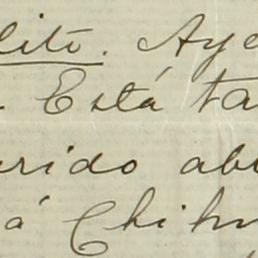 lito. Aye
. Está ta
rido ab
á Chih